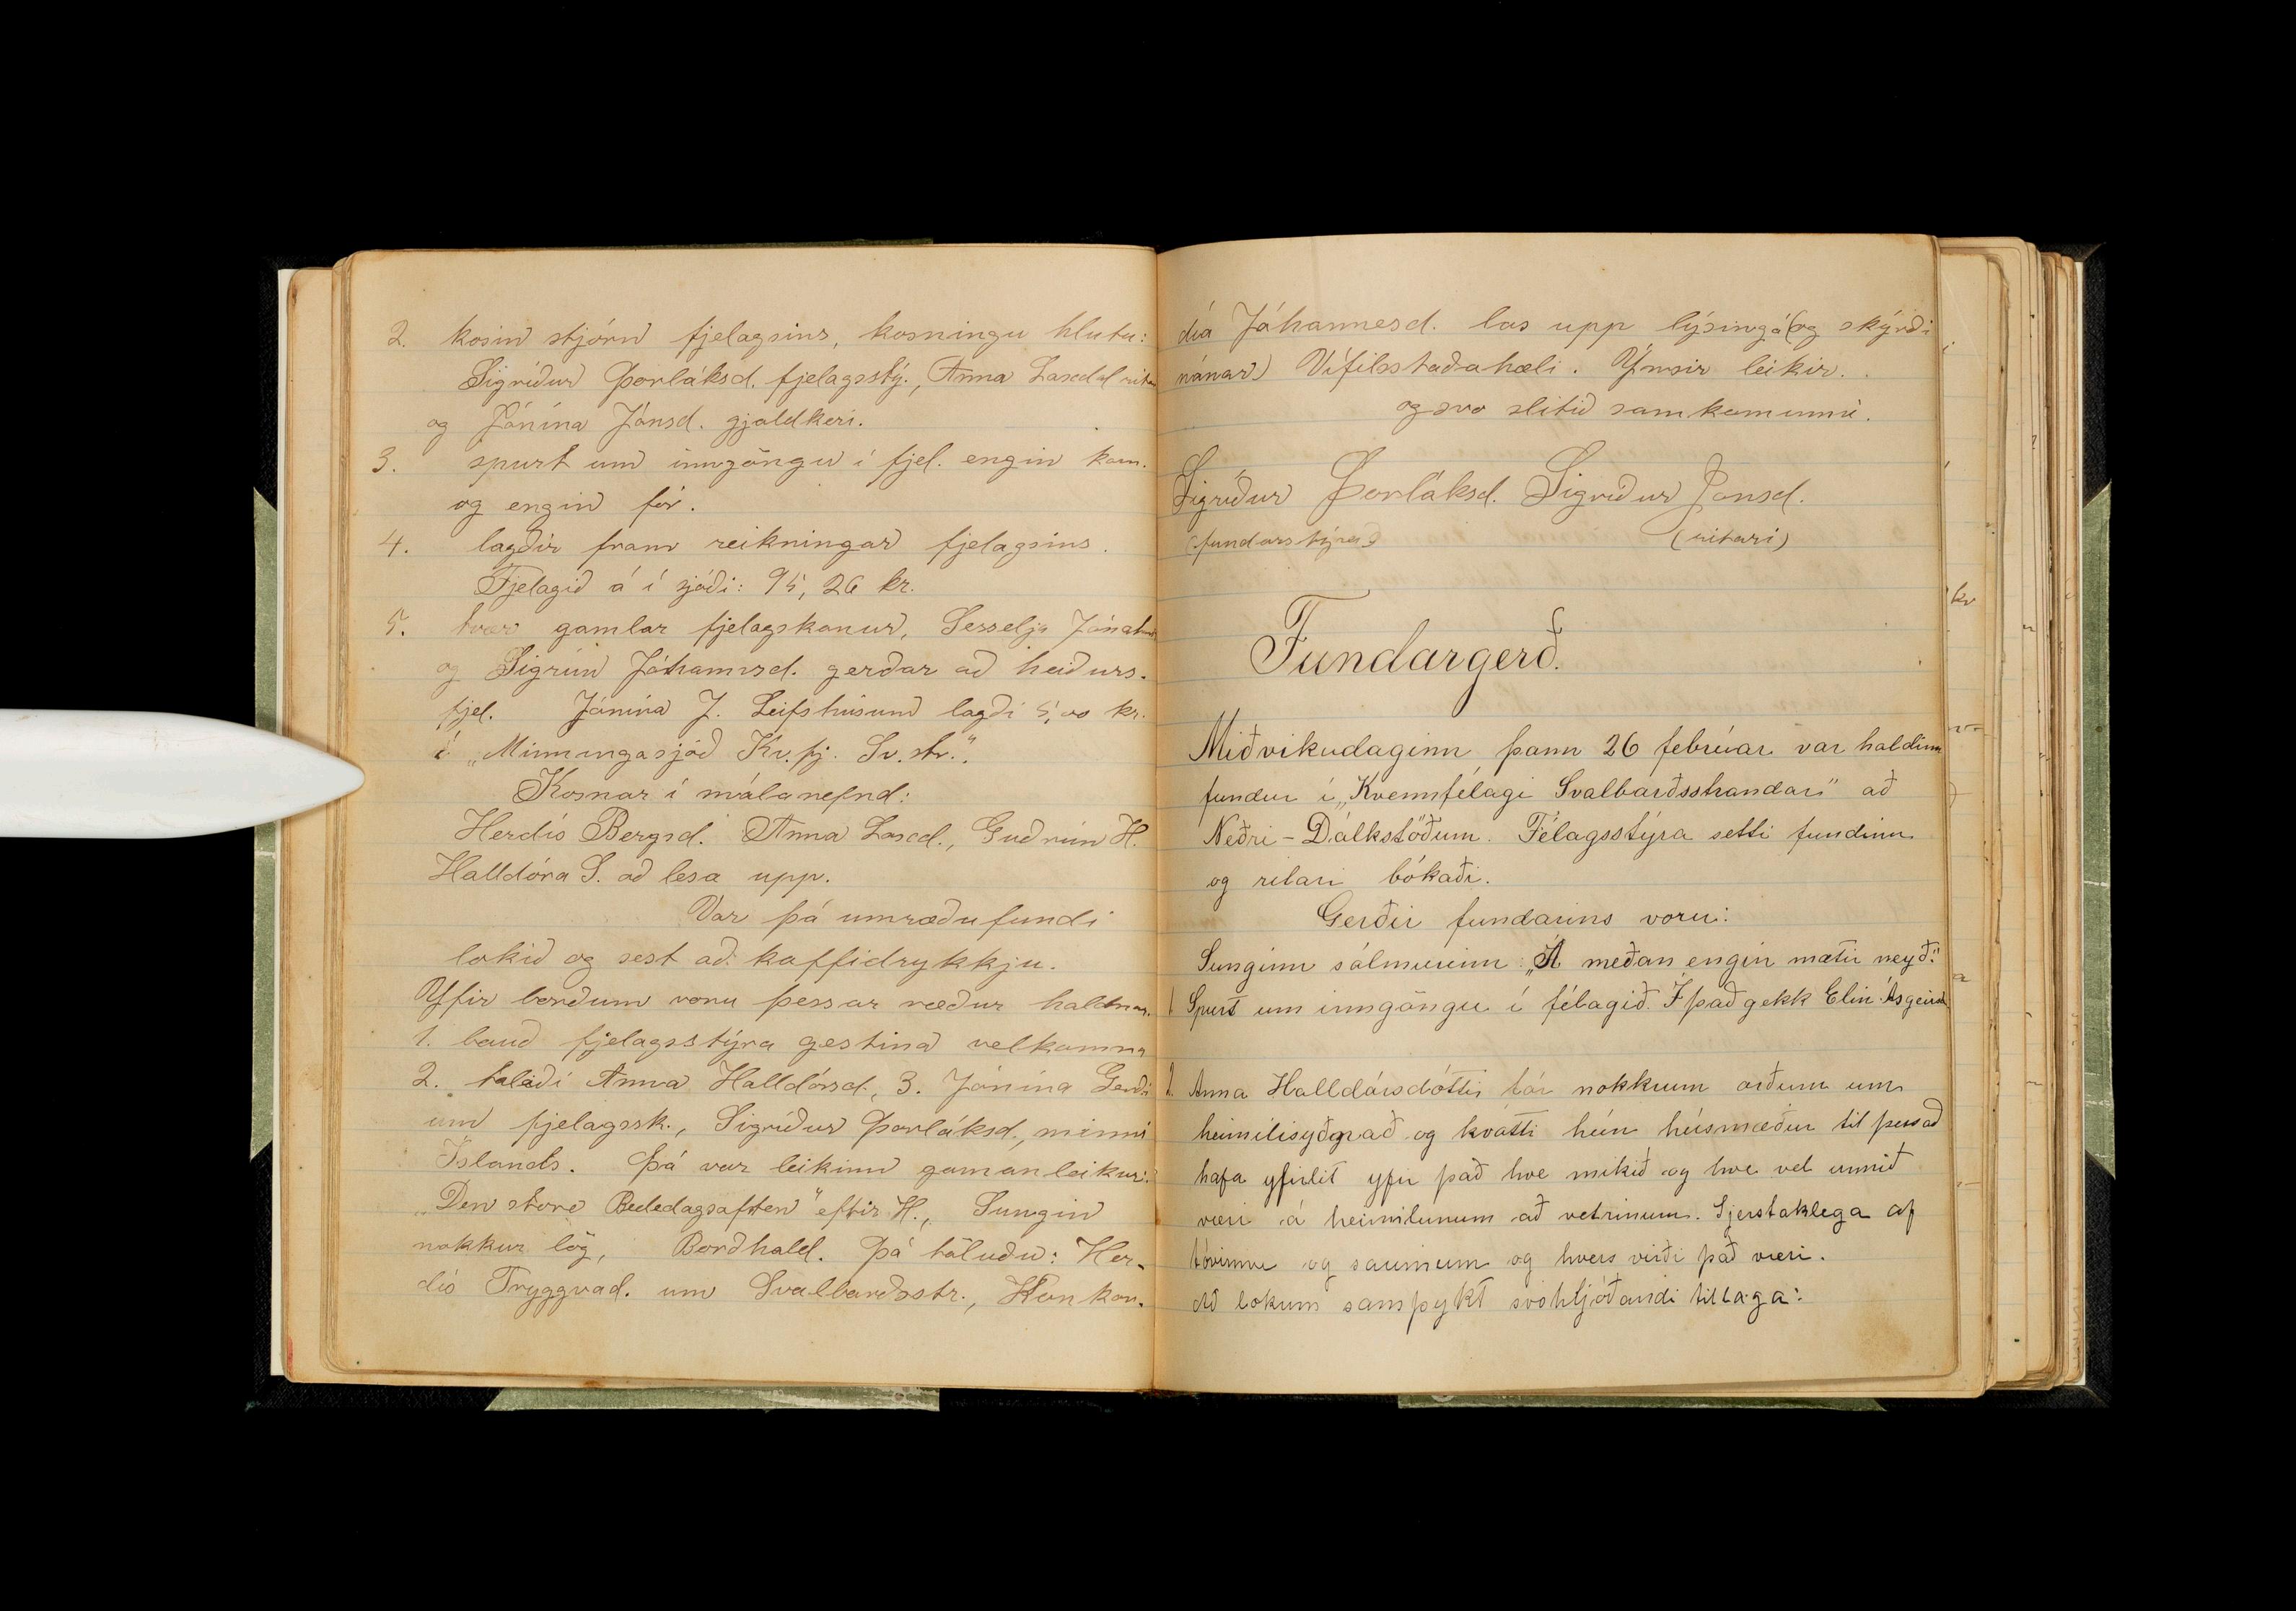 2. kosin stjórn fjelagsins, kosningu hlutu:
Sigríður Þorláksd. fjelagsstý., Anna Laxdal ritari
og Jónína Jónsd. gjaldkeri.
3. spurt um inngöngu í fjel. engin kom.
og engin fór.
4. lagðir fram reikningar fjelagsins.
Fjelagið á í sjóði: 95,26 kr.
5. tvær gamlar fjelagskonur, Sesselja
og Sigrún Jóhannsd. gerðar að heiðurs-
fjel. Jónína J. Leifshúsum lagði 5,00 kr.
í „Minningasjóð Kv.fj. Sv.str.".
Kosnar í málanefnd:
Herdís Bergsd. Anna Laxd., Guðrún H.
Halldóra S. að lesa upp.
Var þá umræðufundi
lokið og sest að kaffidrykkju.
Yfir borðum voru þessar ræður haldnar.
1. bauð fjelagsstýra gestina velkomna
2. talaði Anna Halldórsd., 3. Jónína Gerði
um fjelagssk., Sigríður Þorláksd., minni
Íslands. Þá var leikinn gamanleikur:
„Den store Bededagsaften" eftir H., Sungin
nokkur lög, Borðhald. Þá töluðu: Her-
dís Tryggvad. um Svalbarðsstr., Konkor-
día Jóhannesd. las upp lýsingá (og skýrði
nánar) Vífilsstaðahæli. Ýmsir leikir.
og svo slitið samkomunni.
Sigríður Þorláksd. Sigríður Jónsd.
(fundarstýra) (ritari)
Fundargerð.
Miðvikudaginn þann 26 febrúar var haldinn
fundur í „Kvennfélagi Svalbarðsstrandar" að
Neðri-Dálkstöðum. Félagsstýra setti fundinn
og ritari bókaði.
Gerðir fundarins voru:
Sunginn sálmurinn: „Á meðan engin mætir neyð."
1 Spurt um inngöngu í félagið. Í það gekk Elín Ásgeirsd.
2. Anna Halldórsdóttir fór nokkrum orðum um
heimilisyðnað og kvatti hún húsmæður til þess að
hafa yfirlit yfir það hve mikið og hve vel unnið
væri á heimilunum að vetrinum. Sjerstaklega af
tóvinnu og saumum og hvers virði það væri.
Að lokum samþykt svohljóðandi tillaga:
kr